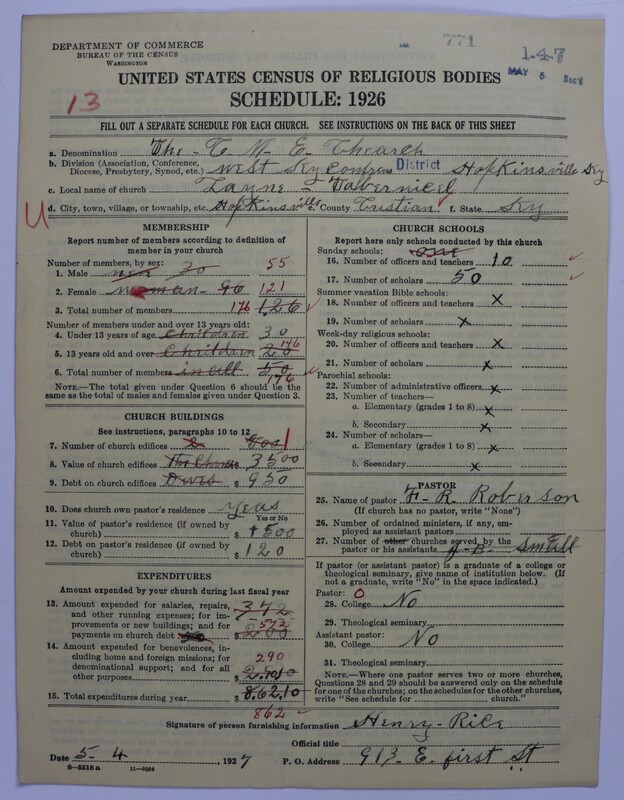 DEPARTMENT OF COMMERCE
BUREAU OF THE CENSUS
WASHINGTON
771
147
MAY 6 1927
UNITED STATES CENSUS OF RELIGIOUS BODIES
SCHEDULE: 1926
13
FILL OUT A SEPARATE SCHEDULE FOR EACH CHURCH. SEE INSTRUCTIONS ON THE BACK OF THIS SHEET
a. Denomination The C M E Chearch
b. Division (Association, Conference, Diocese, Presbytery, Synod, etc.) West Ky Confrens District Hopkinsville Ky
c. Local name of church Layne - Tavernicel
U
d. City, town, village, or township, etc. Hopkinsville e. County Cristian f. State Ky
MEMBERSHIP
Report number of members according to definition of member in your church
Number of members, by sex:
1. Male men 30 55
2. Female woman 96 121
3. Total number of members 176 126
Number of members under and over 13 years old:
4. Under 13 years of age Children 30
5. 13 years old and over Children 20 146
6. Total number of members in all 50
176
NOTE.—The total given under Question 6 should be the same as the total of males and females given under Question 3.
CHURCH BUILDINGS
See instructions, paragraphs 10 to 12
7. Number of church edifices 2 1
8. Value of church edifices 3500
9. Debt on church edifices Owes 950
10. Does church own pastor's residence Yeus
Yes or No
11. Value of pastor's residence (if owned by church) $ 1500
12. Debt on pastor's residence (if owned by church) $ 120
EXPENDITURES
Amount expended by your church during last fiscal year
13. Amount expended for salaries, repairs, and other running expenses; for improvements or new buildings; and for payments on church debt 372
572
$ 200
14. Amount expended for benevolences, including home and foreign missions; for denominational support; and for all other purposes 290
$
15. Total expenditures during year $ 862.10
862
CHURCH SCHOOLS
Report here only schools conducted by this church
Sunday schools: one
16. Number of officers and teachers 10
17. Number of scholars 50
Summer vacation Bible schools:
18. Number of officers and teachers X
19. Number of scholars X
Week-day religious schools:
20. Number of officers and teachers X
21. Number of scholars X
Parochial schools:
22. Number of administrative officers X
23. Number of teachers—
a. Elementary (grades 1 to 8) X
b. Secondary X
24. Number of scholars—
a. Elementary (grades 1 to 8) X
b. Secondary X
PASTOR
25. Name of pastor F. R. Roberson
(If church has no pastor, write "None")
26. Number of ordained ministers, if any, employed as assistant pastors
27. Number of other churches served by the pastor or his assistants J. B. Small
If pastor (or assistant pastor) is a graduate of a college or theological seminary, give name of institution below. (If not a graduate, write "No" in the space indicated.)
Pastor: O
28. College No
29. Theological seminary
Assistant pastor:
30. College No
31. Theological seminary
NOTE.—Where one pastor serves two or more churches, Questions 28 and 29 should be answered only on the schedule for one of the churches; on the schedules for the other churches, write "See schedule for church."
Signature of person furnishing information Henry Rice
Official title
Date 5 - 4 , 1927 P. O. Address 913 E. first St
8—5218 a 11—9004